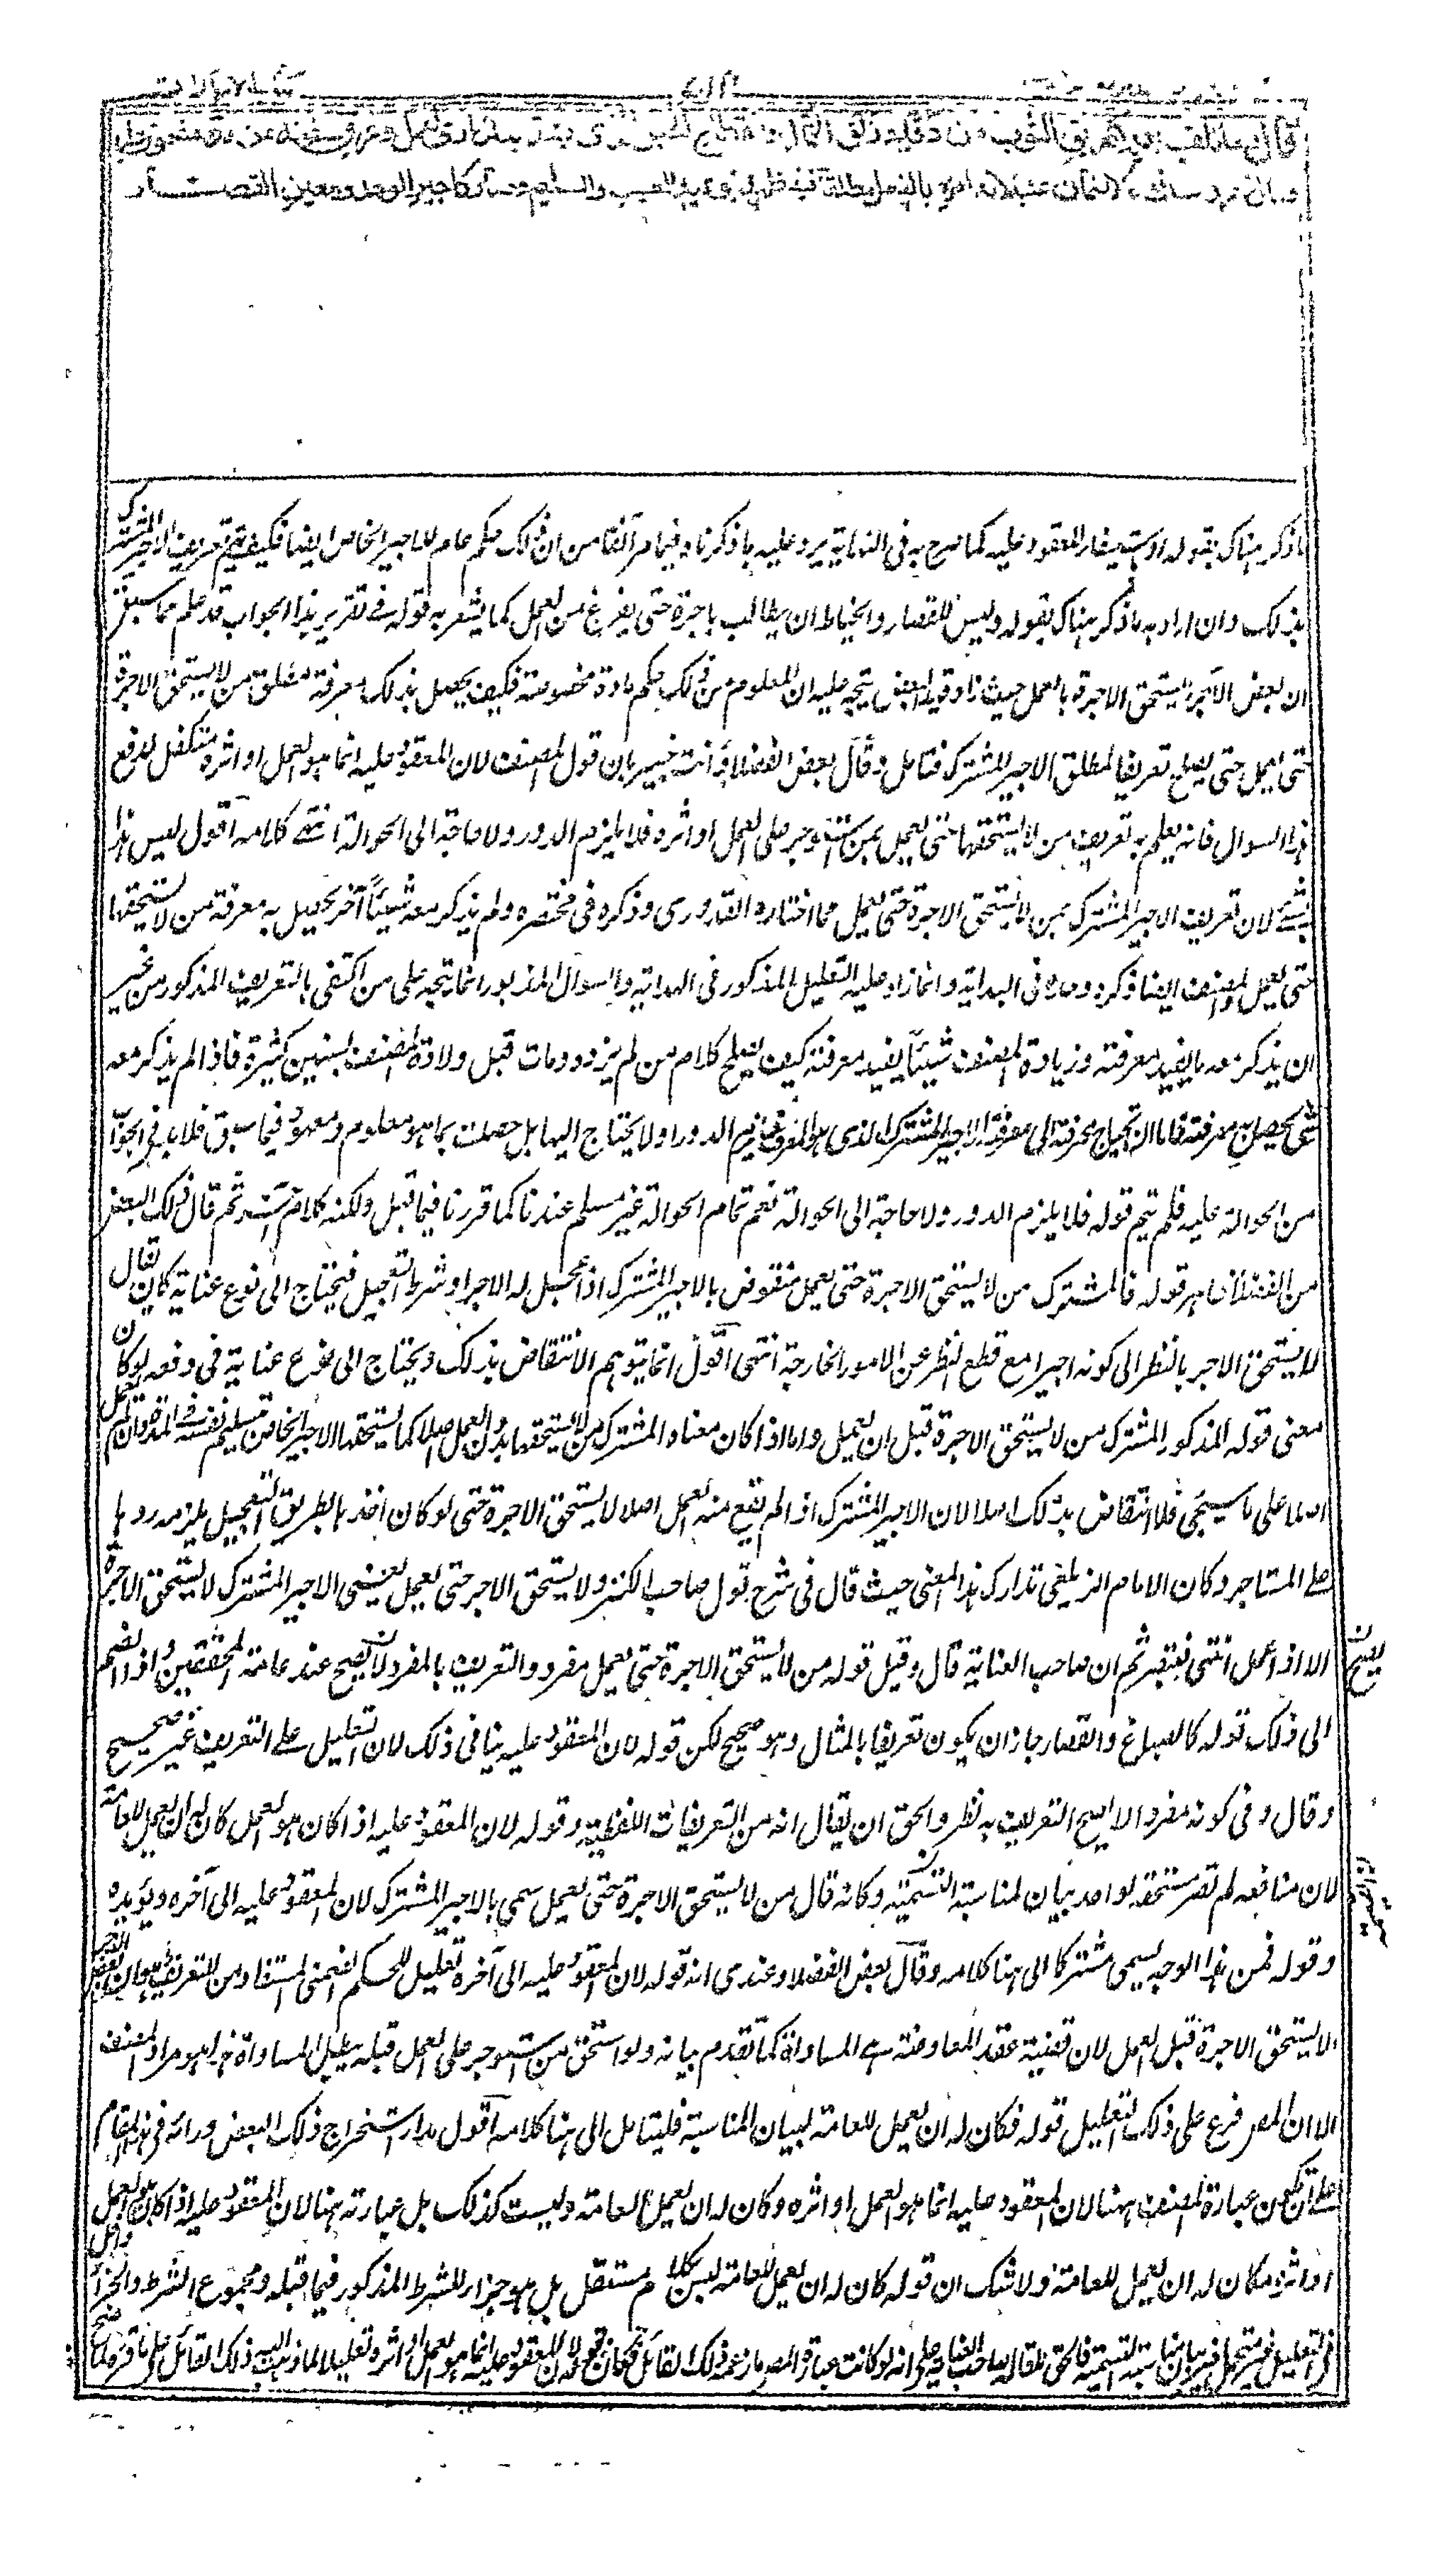 قال وما تلف بعمله كتخريق الثوب من دقه وزلق الحمال وانقطاع الحبل الذي يشد به المكاري الحمل وغرق السفينة من مده مضمون عليه
وقال زفر والشافعي لا ضمان عليه لانه امره بالفعل مطلقا فينتظمه بنوعيه المعيب والسليم وصار كاجير الوحد ومعين القصار
ما ذكر هناك بقوله او باستيفاء المعقود عليه كما صرح به فى النهاية يرد عليه ما ذكرناه فيما مر آنفا من ان ذلك حكم عام للاجير الخاص ايضا فكيف يتم تعريف الاجير المشترك
بذلك وان اراد به ما ذكر هناك بقوله وليس للقصار والخياط ان يطالب باجرة حتى يفرغ من العمل كما يشعر به قوله فى تقرير هذا الجواب قد علم مما سبق
ان بعض الاجراء يستحق الاجرة بالعمل حيث زاد قيد البعض يتجه عليه ان المعلوم من ذلك حكم مادة مخصوصة فكيف يحصل بذلك معرفة مطلق من لا يستحق الاجرة
حتى يعمل حتى يصلح تعريفا لمطلق الاجير المشترك فتامل وقال بعض الفضلاء وانت خبير بان قول المصنف لان المعقود عليه انما هو العمل او اثره متكفل لدفع
هذا السوال فانه يعلم به تعريف من لا يستحقها حتى يعمل بمن استوجر على العمل او اثره فلا يلزم الدور ولا حاجة الى الحوالة انتهى كلامه اقول ليس هذا
بشئ لان تعريف الاجير المشترك بمن لا يستحق الاجرة حتى يعمل مما اختاره القدورى وذكره فى مختصره ولم يذكر معه شيئا آخر يحصل به معرفة من لا يستحقها
حتى يعمل والمصنف ايضا ذكره وحده فى البداية وانما زاد عليه التعليل المذكور فى الهداية والسوال المذبور انما يتجه على من اكتفى بالتعريف المذكور من غير
ان يذكر معه ما يفيد معرفته وزيادة المصنف شيئا يفيد معرفته كيف يصلح كلام من لم يزده ومات قبل ولادة المصنف بسنين كثيرة فاذا لم يذكر معه
شئ يحصل به معرفته فاما ان تحتاج معرفته الى معرفة الاجير المشترك الذى هو المعرف فيلزم الدور او لا يحتاج اليها بل حصلت بما هو معلوم ومعهود فيما سبق فلا بد فى الجواب
من الحوالة عليه فلم يتم قوله فلا يلزم الدور ولا حاجة الى الحوالة نعم تمام الحوالة غير مسلم عندنا كما قررنا فيما قبل ولكنه كلام آخر ثم قال ذلك البعض
من الفضلاء ظاهر قوله فالمشترك من لا يستحق الاجرة حتى يعمل منقوض بالاجير المشترك اذا عجل له الاجر او شرط التعجيل فيحتاج الى نوع عناية كان يقال
لا يستحق الاجر بالنظر الى كونه اجيرا مع قطع النظر عن الامور الخارجة انتهى اقول انما يتوهم الانتقاض بذلك ويحتاج الى نوع عناية فى دفعه لو كان
معنى قوله المذكور المشترك من لا يستحق الاجرة قبل ان يعمل واما اذا كان معناه المشترك من لا يستحقها بدون العمل اصلا كما يستحقها الاجير الخاص بتسليم نفسه فى المدة وان لم يعمل
اصلا على ما سيجئ فلا انتقاض بذلك اصلا لان الاجير المشترك اذا لم يقع منه العمل اصلا لا يستحق الاجرة حتى لو كان اخذها بطريق التعجيل يلزمه ردها
على المستاجر وكان الامام الزيلعى تدارك هذا المعنى حيث قال فى شرح قول صاحب الكنز ولا يستحق الاجر حتى يعمل يعنى الاجير المشترك لا يستحق الاجرة
الا اذا عمل انتهى فتبصر ثم ان صاحب العناية قال وقيل قوله من لا يستحق الاجرة حتى يعمل مفرد والتعريف بالمفرد لا يصح عند عامة المحققين واذا انضم
الى ذلك قوله كالصباغ والقصار جاز ان يكون تعريفا بالمثال وهو صحيح لكن قوله لان المعقود عليه ينافى ذلك لان التعليل على التعريف غير صحيح
وقال وفى كونه مفردا لا يصح التعريف به نظر والحق ان يقال انه من التعريفات اللفظية وقوله لان المعقود عليه اذا كان هو العمل كان له ان يعمل للعامة
لان منافعه لم تصر مستحقة لواحد بيان لمناسبة التسمية وكانه قال من لا يستحق الاجرة حتى يعمل سمى بالاجير المشترك لان المعقود عليه الى آخره ويؤيده
وقوله فمن هذا الوجه يسمى مشتركا الى هنا كلامه وقال بعض الفضلاء وعندى انه قوله لان المعقود عليه الى آخره تعليل للحكم الضمنى المستفاد من التعريف وهو ان بعض الاجير
لا يستحق الاجرة قبل العمل لان قضية عقد المعاوضة هى المساواة كما تقدم بيانه ولو استحق من استوجر على العمل قبله يبطل المساواة هذا هو مراد المصنف
الا ان المص فرع على ذلك التعليل قوله فكان له ان يعمل للعامة لبيان المناسبة فليتامل الى هنا كلامه اقول مدار استخراج ذلك البعض ورائه فى هذا المقام
على ان تكون عبارة المصنف ههنا لان المعقود عليه انما هو العمل او اثره وكان له ان يعمل للعامة وليست كذلك بل عبارته هنا لان المعقود عليه اذا كان هو العمل
او اثره كان له ان يعمل للعامة ولا شك ان قوله كان له ان يعمل للعامة ليس بكلام مستقل بل هو جزاء للشرط المذكور فيما قبله ومجموع الشرط والجزاء داخل
فى التعليل